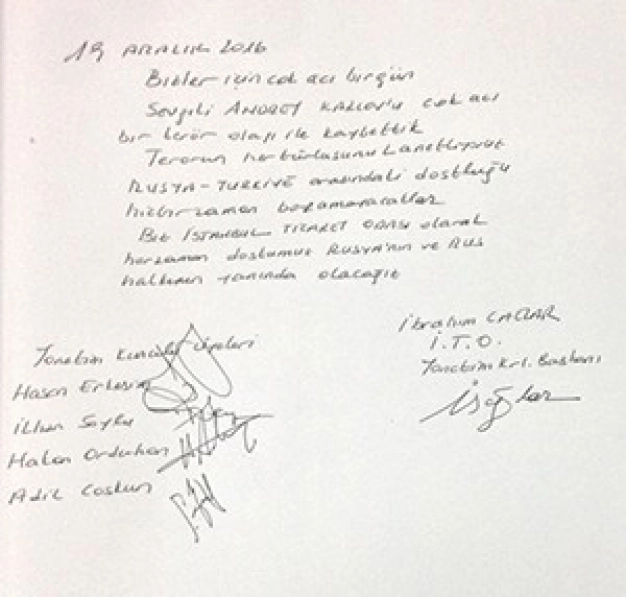 19 ARALIK 2016
Bizler için çok acı birgün
Sevgili ANDREY KARLOV'u çok acı
bir terör olayı ile kaybettik
Terörün her türlüsünü Lanetliyoruz
RUSYA-TÜRKİYE arasındaki dostluğu
hiçbirzaman bozamayacaklar
Biz İSTANBUL TİCARET ODASI olarak
herzaman dostumuz RUSYA'nın ve RUS
halkının yanında olacağız
İbrahim ÇAĞLAR
İ.T.O.
Yönetim Krl. Başkanı
Yönetim Kurulu Üyeleri
Hasan Erkesim
İlhan Soylu
Hakan Orduhan
Adil Coşkun